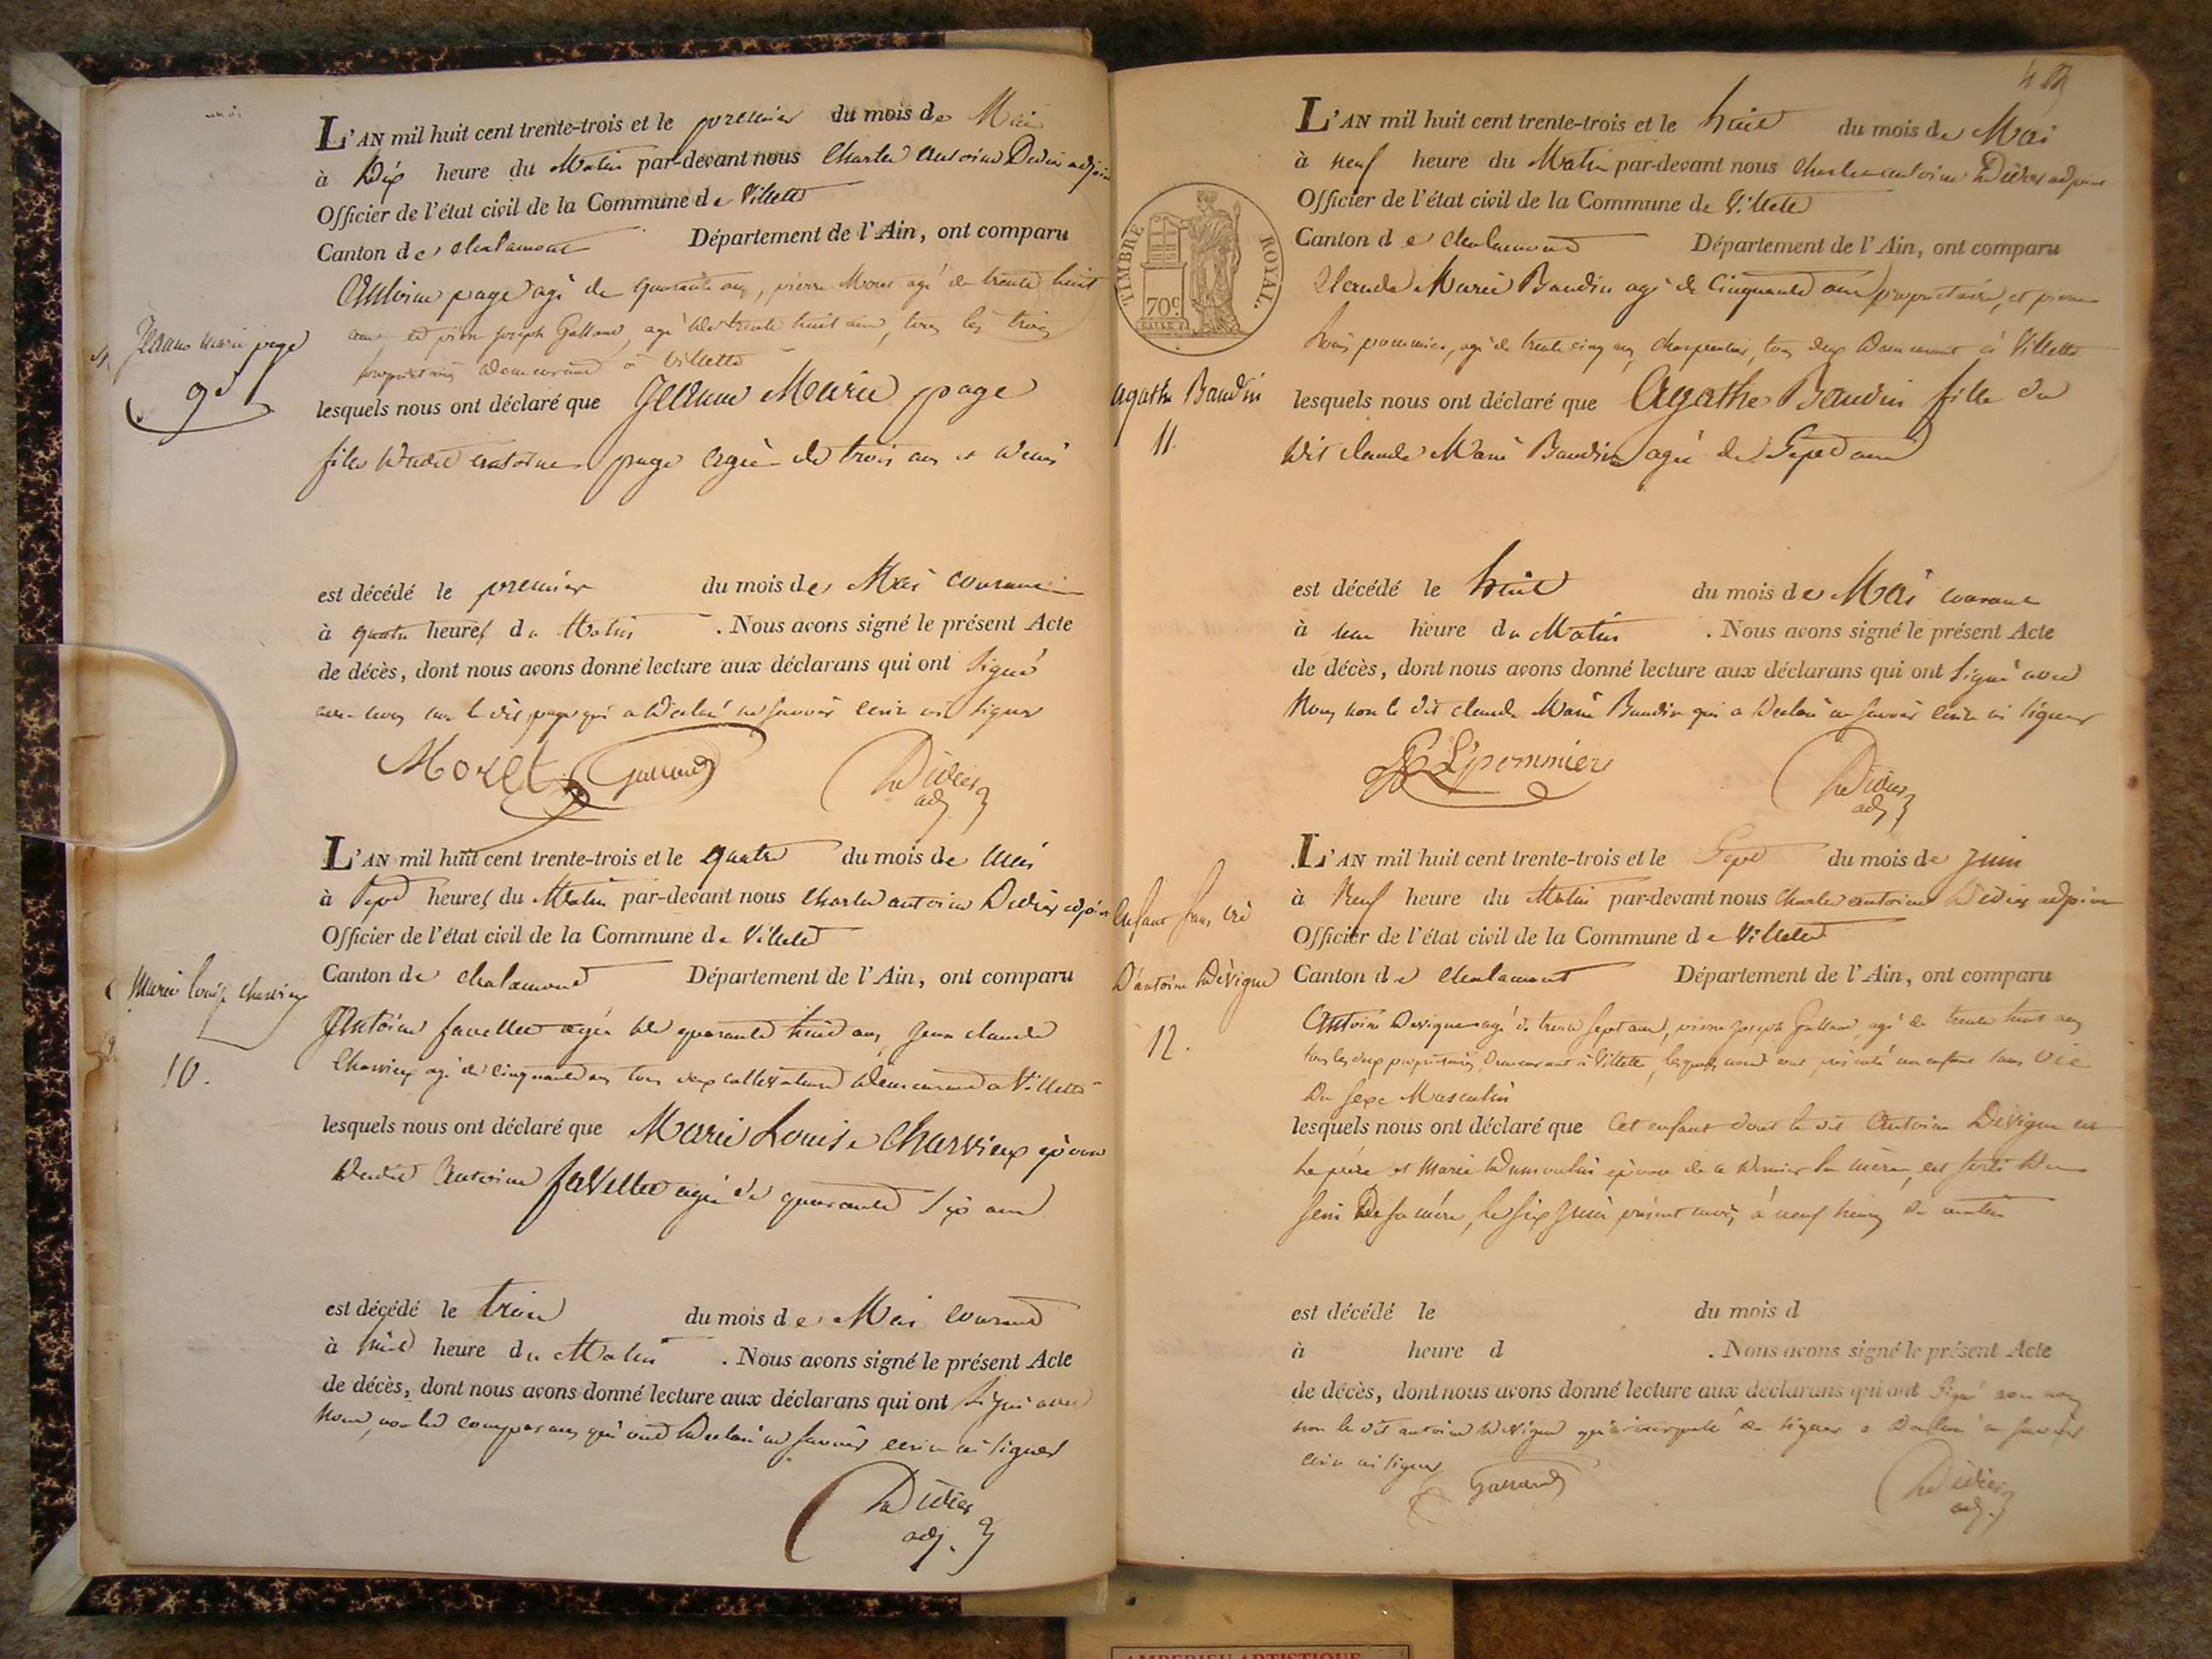 L'AN mil huit cent trente-trois et le premier du mois de Mai
à Dix heure du Matin par-devant nous Charles antoine Didier adjoin
Officier de l'état civil de la Commune de Villette
Canton de chalamont Département de l'Ain, ont comparu
Antoine page agé de quarante ans, pierre Moret agé de trente huit
ans et pierre joseph Galland, agé de trente huit ans, tous les trois
proprietaires demeurant à Villette
Jeanne marie page
9
lesquels nous ont déclaré que Jeanne Marie page
fille dudit antoine page agée de trois ans et demi
est décédé le premier du mois de Mai courant
à quatre heures du Matin . Nous avons signé le présent Acte
de décès, dont nous avons donné lecture aux déclarans qui ont signé
avec nous non le dit page qui a declaré ne savoir ecrire ni signer
Moret Galland Didier
adj
L'AN mil huit cent trente-trois et le quatre du mois de Mai
à sept heures du Matin par-devant nous Charles antoine Didier adjoin
Officier de l'état civil de la Commune de Villette
Canton de chalamont Département de l'Ain, ont comparu
Marie louise charvieux
10.
Antoine favelle agée de quarante huit ans, jean claude
Charvieux agé de cinquante ans tous deux cultivateurs demeurant a Villette
lesquels nous ont déclaré que Marie Louise Charvieux epouse
dudit Antoine favelle agée de quarante six ans
est décédé le trois du mois de Mai courant
à huit heure du Matin . Nous avons signé le présent Acte
de décès, dont nous avons donné lecture aux déclarans qui ont signé avec
nous, non les comparans qui ont declaré ne savoir ecrire ni signer
Didier
adj.
L'AN mil huit cent trente-trois et le huit du mois de Mai
à neuf heure du Matin par-devant nous Charles antoine Didier adjoint
Officier de l'état civil de la Commune de Villette
Canton de chalamont Département de l'Ain, ont comparu
TIMBRE ROYAL.
70c
Claude Marie Baudin agé de Cinquante ans proprietaire, et pierre
louis pommier, agé de trente cinq ans, charpentier, tous deux demeurant à Villette
agathe Baudin
11.
lesquels nous ont déclaré que Agathe Baudin fille du
dit claude Marie Baudin agée de Sept ans
est décédé le huit du mois de Mai courant
à une heure du Matin . Nous avons signé le présent Acte
de décès, dont nous avons donné lecture aux déclarans qui ont signé avec
Nous non le dit claude Marie Baudin qui a declaré ne savoir ecrire ni signer
P L pommier Didier
adj
L'AN mil huit cent trente-trois et le Sept du mois de juin
à Neuf heure du Matin par-devant nous Charles antoine Didier adjoint
Officier de l'état civil de la Commune de Villette
Canton de chalamont Département de l'Ain, ont comparu
Enfant sans vie
D'antoine Devigne
12.
Antoine Devigne agé de trente sept ans, pierre joseph Galland agé de trente huit ans
tous les deux proprietaires, demeurant à Villette, lesquels nous ont présenté un enfant sans vie
Du sexe Masculin
lesquels nous ont déclaré que cet enfant dont le dit Antoine Devigne est
le père et Marie Dumoulin epouse de ce dernier la mère, est sorti du
sein de sa mère, le six juin présent mois, à neuf heures du matin
est décédé le du mois d
à heure d . Nous avons signé le présent Acte
de décès, dont nous avons donné lecture aux déclarans qui ont signé avec nous
non le dit antoine Devigne qui interpellé de signer a declaré ne savoir
ecrire ni signer
Galland Didier
adj.
AMBERIEU ARTISTIQUE